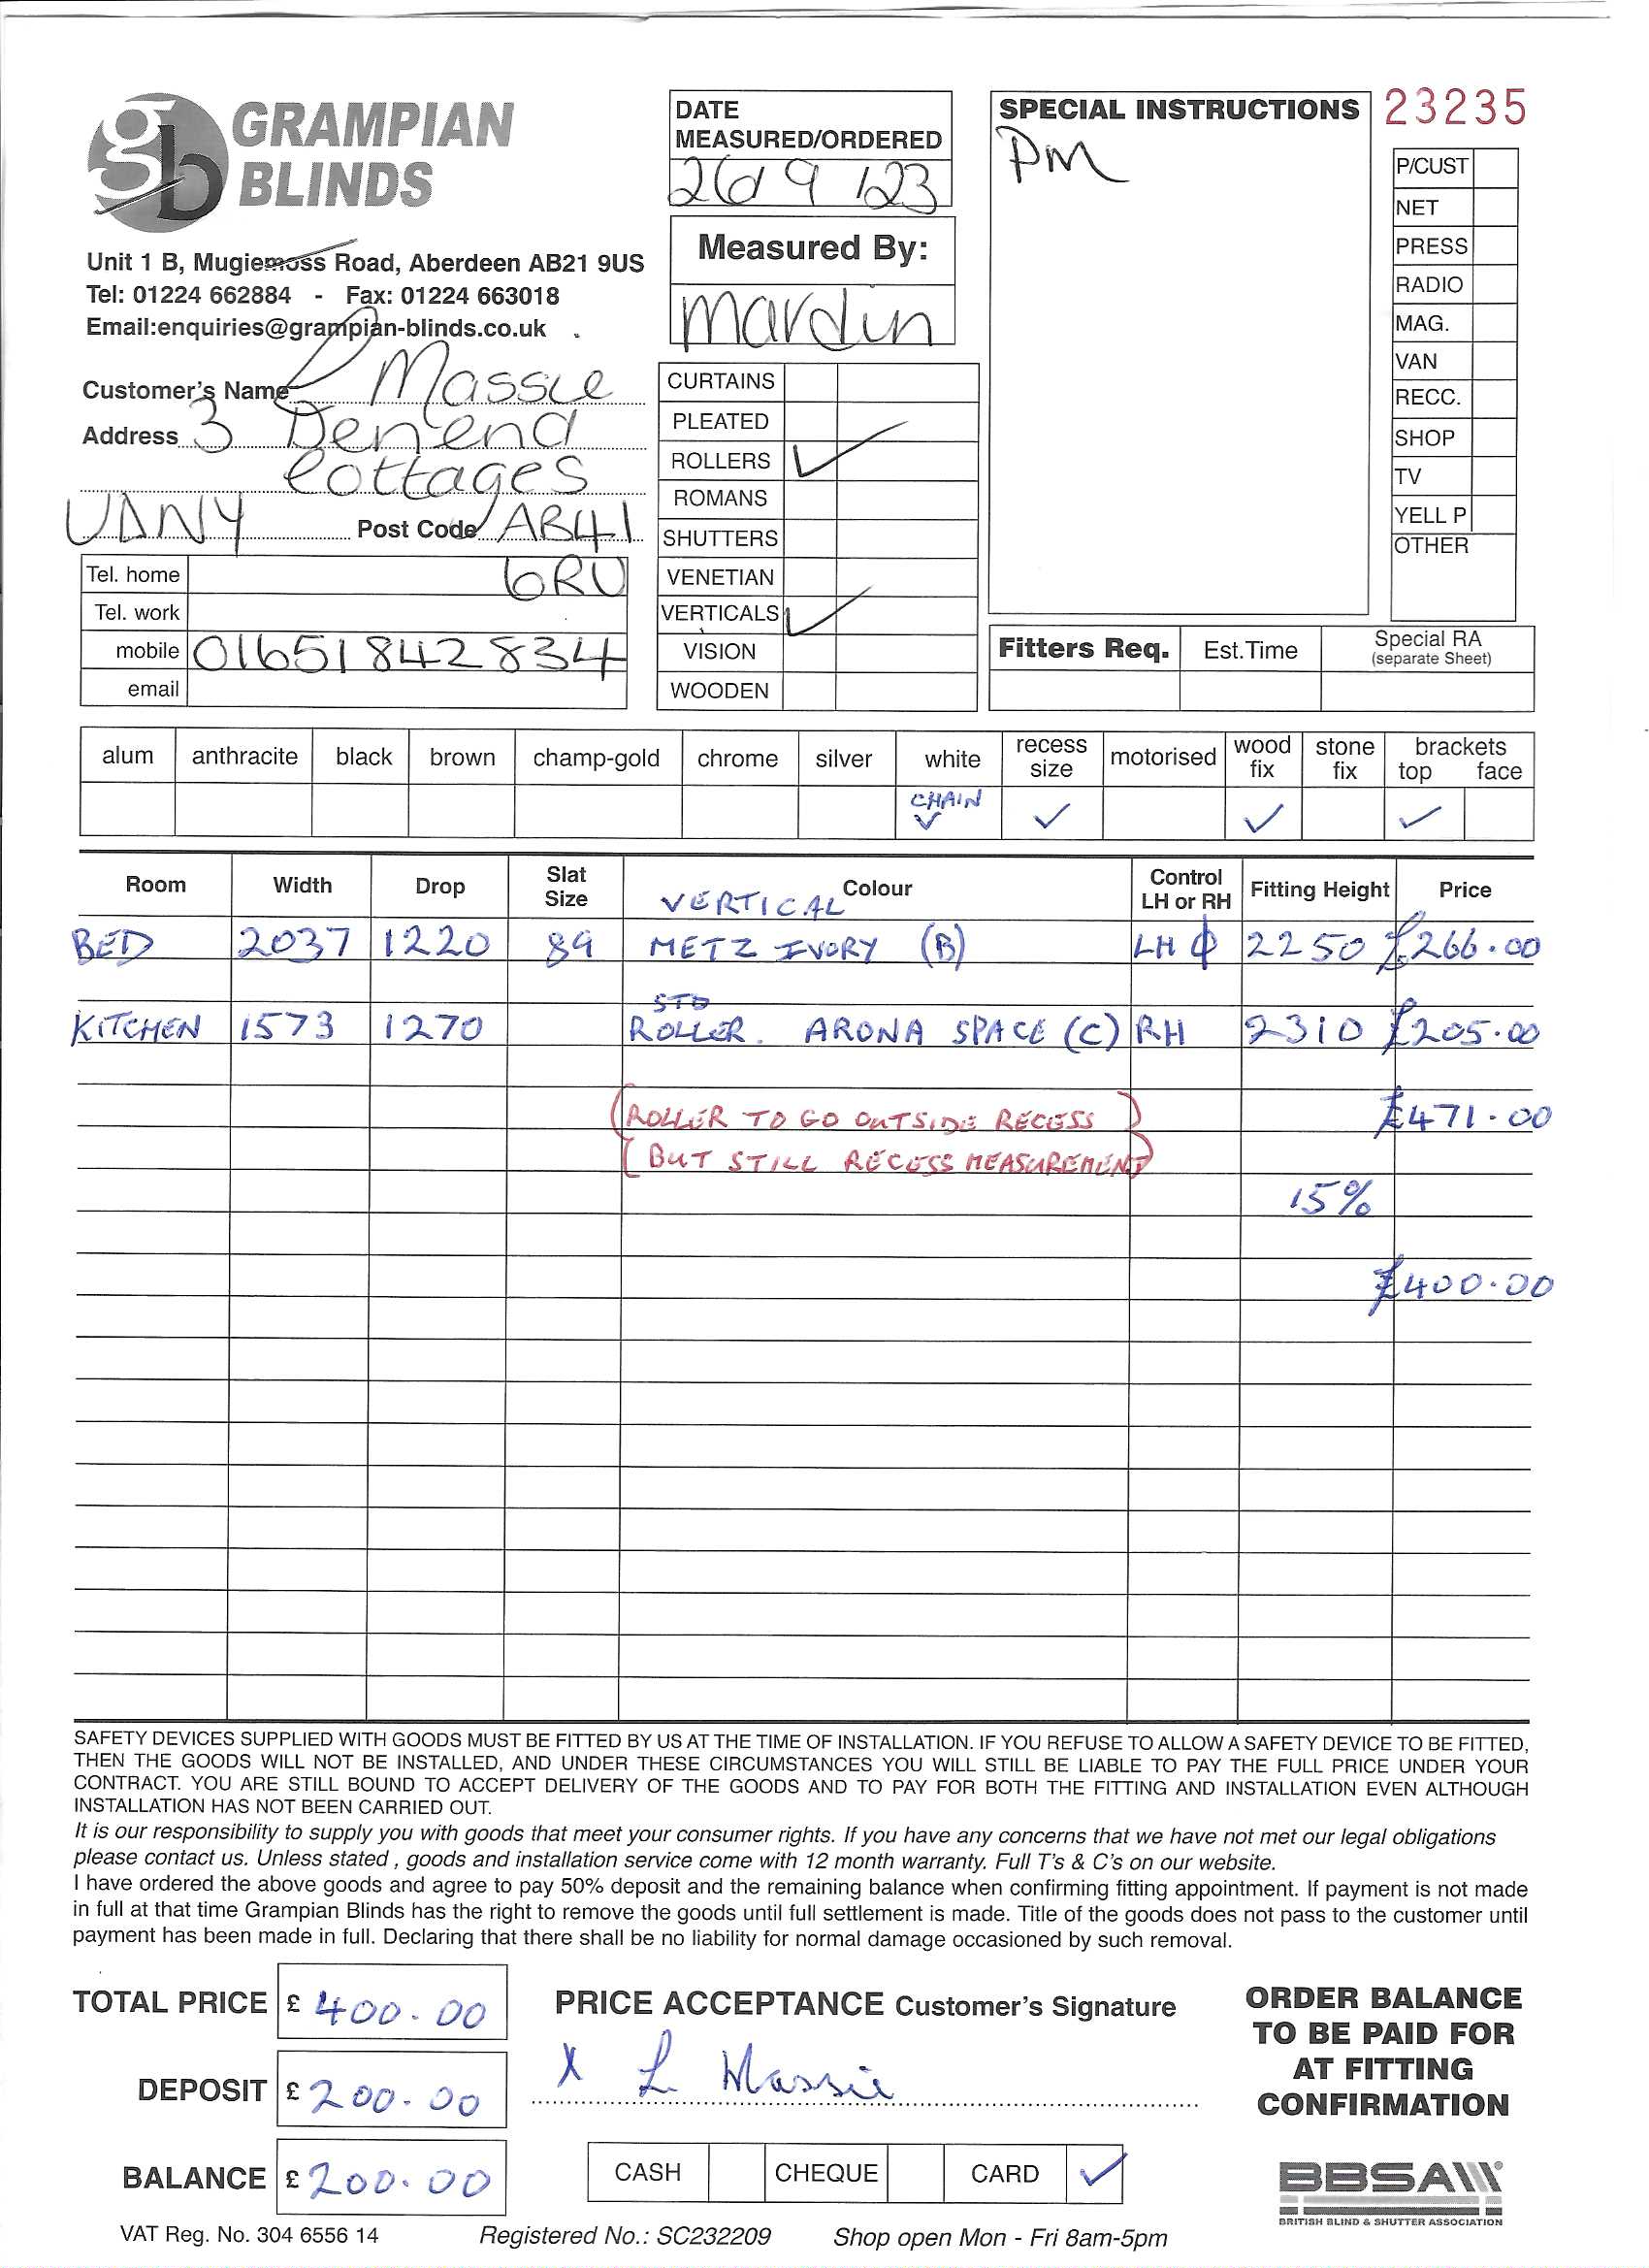 gb GRAMPIAN
BLINDS
Unit 1 B, Mugiemoss Road, Aberdeen AB21 9US
Tel: 01224 662884 - Fax: 01224 663018
Email:enquiries@grampian-blinds.co.uk
Customer's Name L Massie
Address 3 Denend
Cottages
UDNY Post Code AB41
6RU
Tel. home
Tel. work
mobile 01651842834
email
DATE
MEASURED/ORDERED
26/9/23
Measured By:
Martin
CURTAINS
PLEATED
ROLLERS ✓
ROMANS
SHUTTERS
VENETIAN
VERTICALS ✓
VISION
WOODEN
SPECIAL INSTRUCTIONS
PM
23235
P/CUST
NET
PRESS
RADIO
MAG.
VAN
RECC.
SHOP
TV
YELL P
OTHER
Fitters Req. Est.Time Special RA
(separate Sheet)
alum anthracite black brown champ-gold chrome silver white recess size motorised wood fix stone fix brackets top face
CHAIN
✓ ✓ ✓ ✓
Room Width Drop Slat Size Colour Control LH or RH Fitting Height Price
VERTICAL
BED 2037 1220 89 METZ IVORY (B) LH 2250 £266.00
STD
KITCHEN 1573 1270 ROLLER. ARONA SPACE (C) RH 2310 £205.00
(ROLLER TO GO OUTSIDE RECESS) £471.00
(BUT STILL RECESS MEASUREMENT)
15%
£400.00
SAFETY DEVICES SUPPLIED WITH GOODS MUST BE FITTED BY US AT THE TIME OF INSTALLATION. IF YOU REFUSE TO ALLOW A SAFETY DEVICE TO BE FITTED,
THEN THE GOODS WILL NOT BE INSTALLED, AND UNDER THESE CIRCUMSTANCES YOU WILL STILL BE LIABLE TO PAY THE FULL PRICE UNDER YOUR
CONTRACT. YOU ARE STILL BOUND TO ACCEPT DELIVERY OF THE GOODS AND TO PAY FOR BOTH THE FITTING AND INSTALLATION EVEN ALTHOUGH
INSTALLATION HAS NOT BEEN CARRIED OUT.
It is our responsibility to supply you with goods that meet your consumer rights. If you have any concerns that we have not met our legal obligations
please contact us. Unless stated , goods and installation service come with 12 month warranty. Full T's & C's on our website.
I have ordered the above goods and agree to pay 50% deposit and the remaining balance when confirming fitting appointment. If payment is not made
in full at that time Grampian Blinds has the right to remove the goods until full settlement is made. Title of the goods does not pass to the customer until
payment has been made in full. Declaring that there shall be no liability for normal damage occasioned by such removal.
TOTAL PRICE £ 400.00
DEPOSIT £ 200.00
BALANCE £ 200.00
PRICE ACCEPTANCE Customer's Signature
X L Massie
CASH CHEQUE CARD ✓
ORDER BALANCE
TO BE PAID FOR
AT FITTING
CONFIRMATION
BBSA
BRITISH BLIND & SHUTTER ASSOCIATION
VAT Reg. No. 304 6556 14 Registered No.: SC232209 Shop open Mon - Fri 8am-5pm